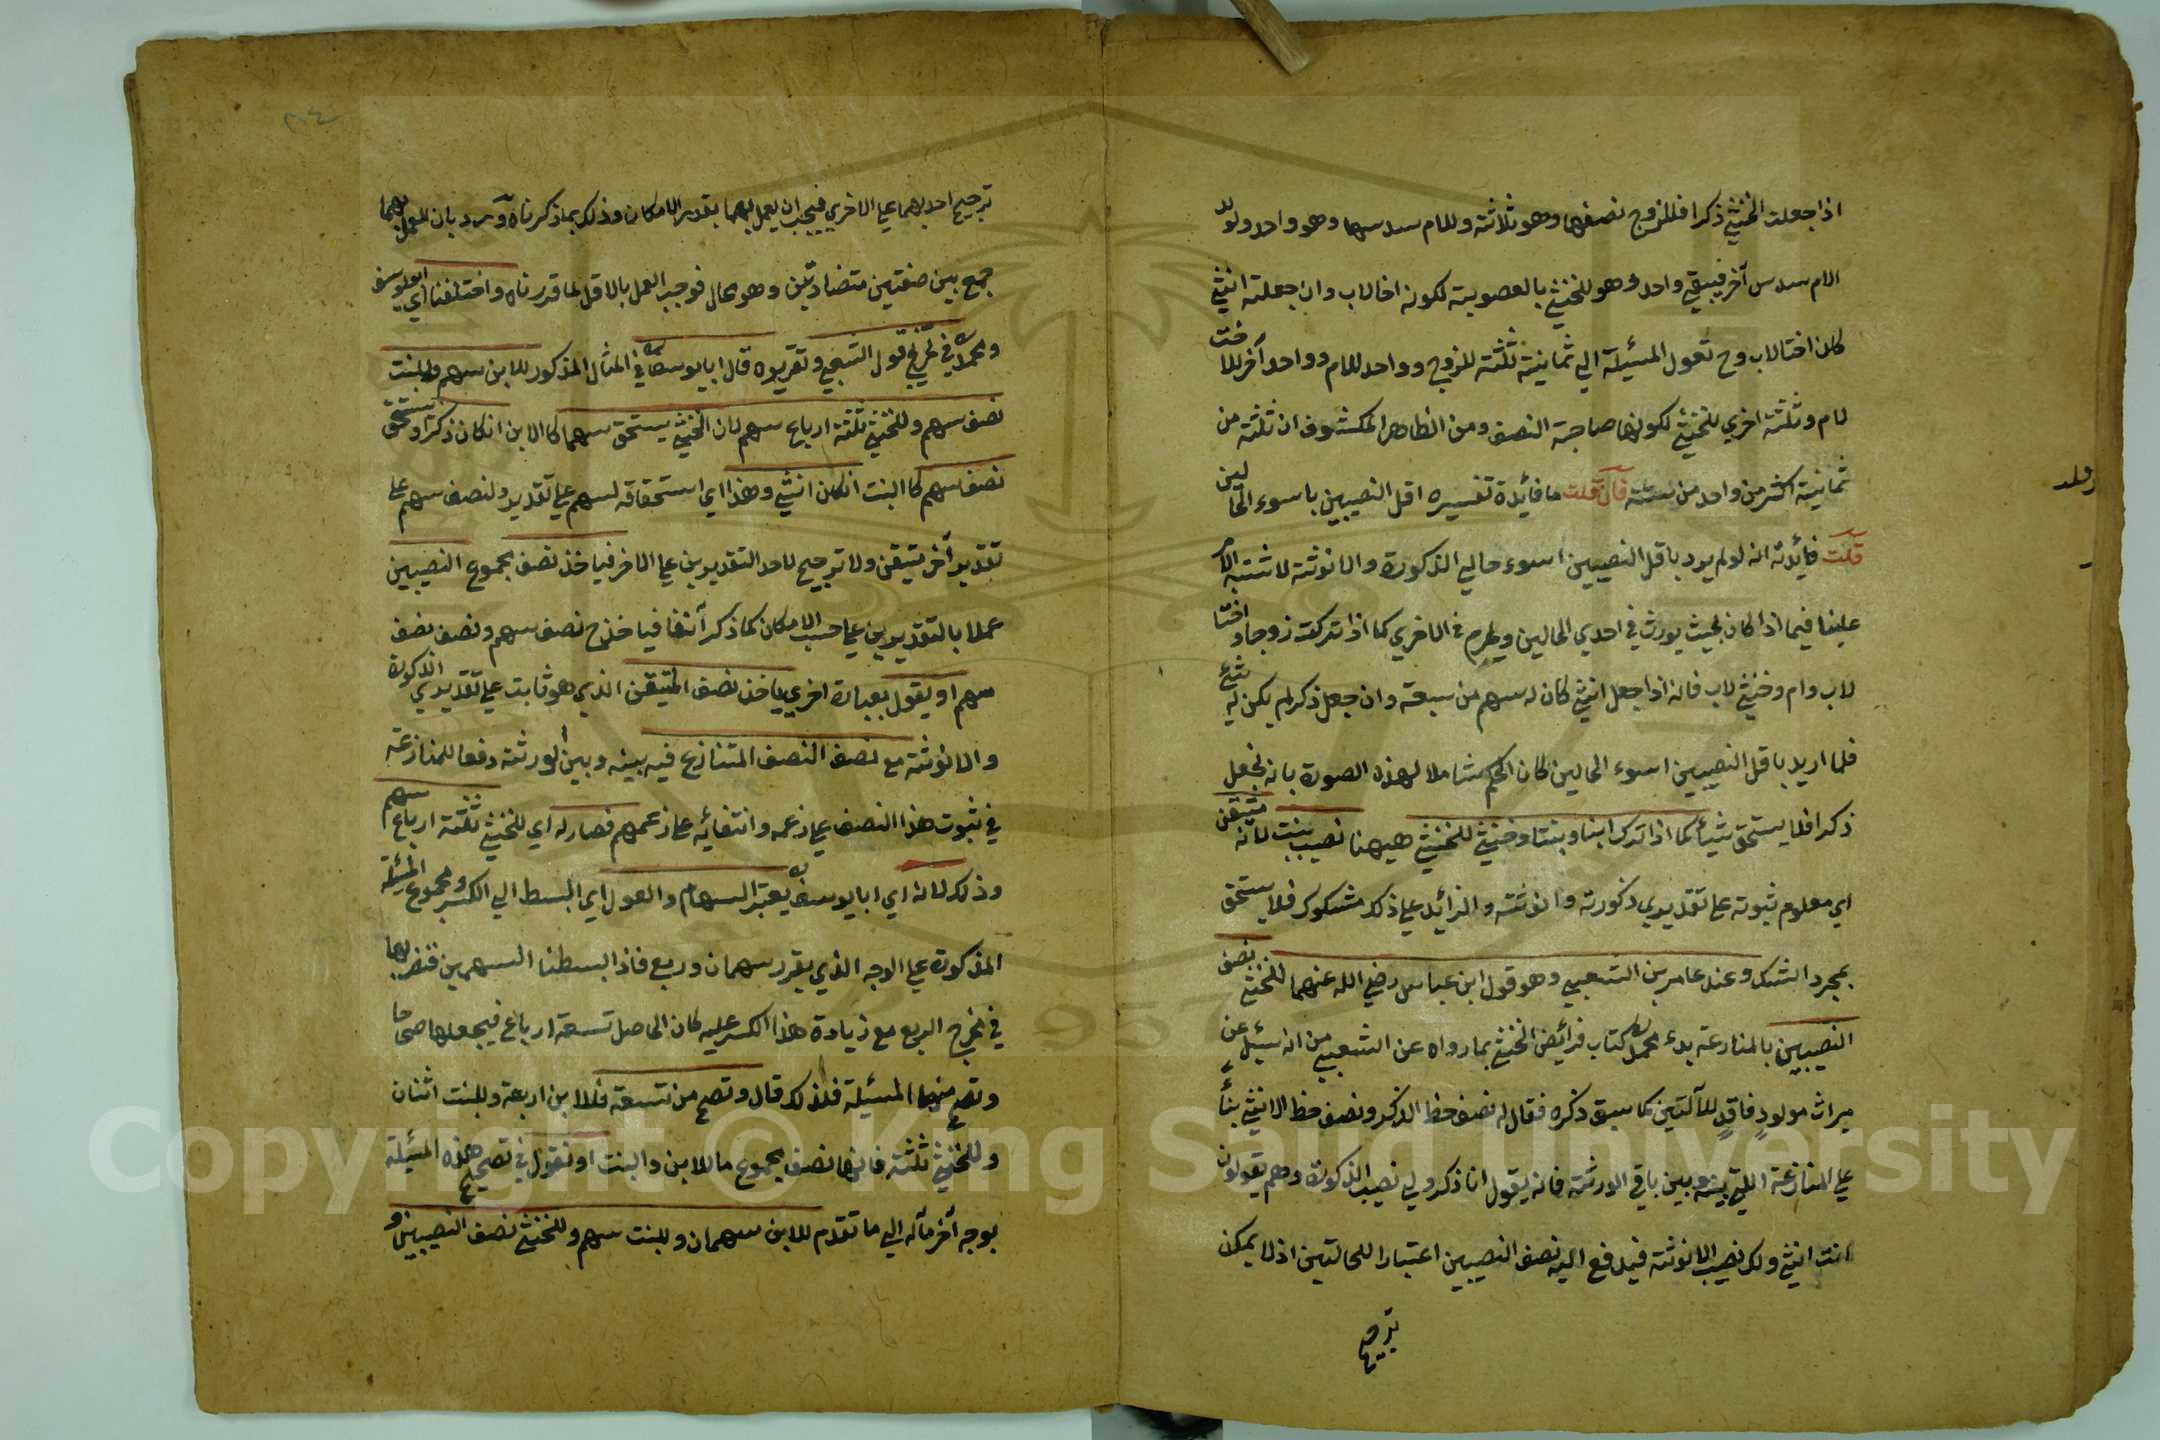 اذا جعلت الخنثي ذكرا فللزوج نصفها وهو ثلاثة وللام سدسها وهو واحد ولولد
الام سدس آخر فيبقي واحد وهو للخنثي بالعصوبية لكونه اخا لاب وان جعلته انثي
كان اختا لاب وح تعول المسئلة الي ثمانية ثلثة للزوج وواحد للام وواحد آخر للاخت
لام وثلثة اخري للخنثي لكونها صاحبة النصف ومن الظاهر المكشوف ان ثلثة من
ثمانية اكثر من واحد من ستة فان قلت ما فائدة تفسيره اقل النصيبين باسوء الحالين
قلت فائدته انه لو لم يرد باقل النصيبين اسوء حالي الذكورة والانوثة لاشتبه الامر
علينا فيما اذا كان بحيث يورث في احدي الحالين ويحرم في الاخري كما اذا تركت زوجا واختا
لاب وام وخنثي لاب فانه اذا جعل انثي كان له سهم من سبعة وان جعل ذكرا لم يكن له شئ
فلما اريد باقل النصيبين اسوء الحالين كان الحكم شاملا لهذه الصورة بانه يجعل
ذكرا فلا يستحق شيأ كما اذا ترك ابنا وبنتا وخنثي للخنثي هيهنا نصيب بنت لانه متيقن
اي معلوم ثبوته علي تقديري ذكورته وانوثته والزائد علي ذلك مشكوك فلا يستحق
بمجرد الشك وعند عامر بن الشعبي وهو قول ابن عباس رضي الله عنهما للخنثي نصف
النصيبين بالمنازعة بدء محمد كتاب فرائض الخنثي بما رواه عن الشعبي من انه سئل عن
ميراث مولود فاقد للآلتين كما سبق ذكره فقال له نصف حظ الذكر ونصف حظ الانثي بناء
علي المنازعة التي بينه وبين باقي الورثة فانه يقول انا ذكر ولي نصيب الذكورة وهم يقولون
انت انثي ولك نصيب الانوثة فيدفع اليه نصف النصيبين اعتبارا للحالتين اذ لا يمكن
ترجيح
ترجيح احديهما علي الاخري فيجب ان يعمل بهما بقدر الامكان وذلك بما ذكرناه ورد بان العمل بهما
جمع بين صفتين متضادتين وهو محال فوجب العمل بالاقل لما قدرناه واختلفا اي ابو يوسف
ومحمد في تخريج قول الشعبي وتقريره قال ابا يوسف في المثال المذكور للابن سهم وللبنت
نصف سهم وللخنثي ثلثة ارباع سهم لان الخنثي يستحق سهما كالابن ان كان ذكرا ويستحق
نصف سهم كالبنت ان كان انثي وهذا اي استحقاقه لسهم علي تقدير ولنصف سهم علي
تقدير آخر متيقن ولا ترجيح لاحد التقديرين علي الاخر فياخذ نصف مجموع النصيبين
عملا بالتقديرين علي حسب الامكان كما ذكر آنفا فياخذ ح نصف سهم ونصف نصف
سهم او يقول بعبارة اخري ياخذ نصف المتيقن الذي هو ثابت علي تقديري الذكورة
والانوثة مع نصف النصف المتنازع فيه بينه وبين الورثة دفعا للمنازعة
في ثبوت هذا النصف علي زعمه وانتفائه علي زعمهم فصار له اي للخنثي ثلثة ارباع سهم
وذلك لانه اي ابا يوسف يعتبر السهام والعول اي البسط الي الكسر ومجموع المسئلة
المذكورة علي الوجه الذي يقرر سهمان وربع فاذا بسطنا السهمين فنضربهما
في مخرج الربع مع زيادة هذا الكسر عليه كان الحاصل تسعة ارباع فيجعلها صحاحا
وتصح منها المسئلة فلذلك قال وتصح من تسعة فللابن اربعة وللبنت اثنان
وللخنثي ثلثة فانها نصف مجموع ما للابن والبنت او نقول في تصحيح هذه المسئلة
بوجه آخر مآله الي ما تقدم للابن سهمان وللبنت سهم وللخنثي نصف النصيبين و
Copyright © King Saud University
1957